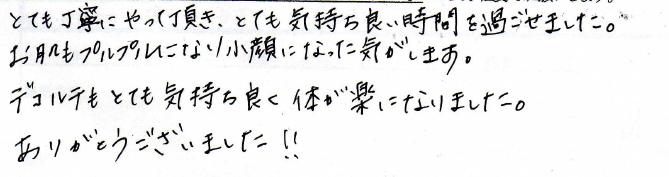 とても丁寧にやって頂き、とても気持ち良い時間を過ごせました。
お肌もプルプルになり小顔になった気がします。
デコルテもとても気持ち良く体が楽になりました。
ありがとうございました!!